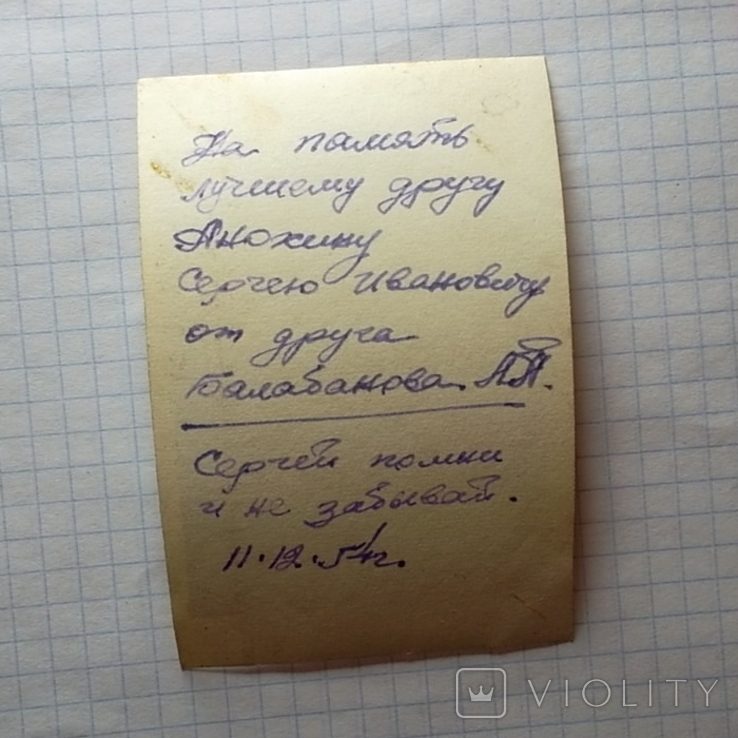 На память
лучшему другу
Анохину
Сергею Ивановичу
от друга
Балабанова
Сергей помни
и не забывай.
11.12.54г.
VIOLITY